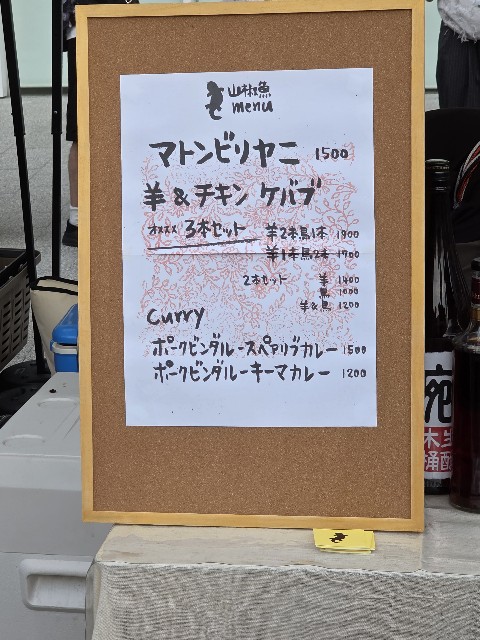 山椒魚
menu
マトンビリヤニ 1500
羊 & チキン ケバブ
オススメ 3本セット 羊2本鳥1本 1900
羊1本鳥2本 1700
2本セット 羊 1400
鳥 1000
羊&鳥 1200
Curry
ポークビンダルースペアリブカレー 1500
ポークビンダルーキーマカレー 1200
宛
木
桶